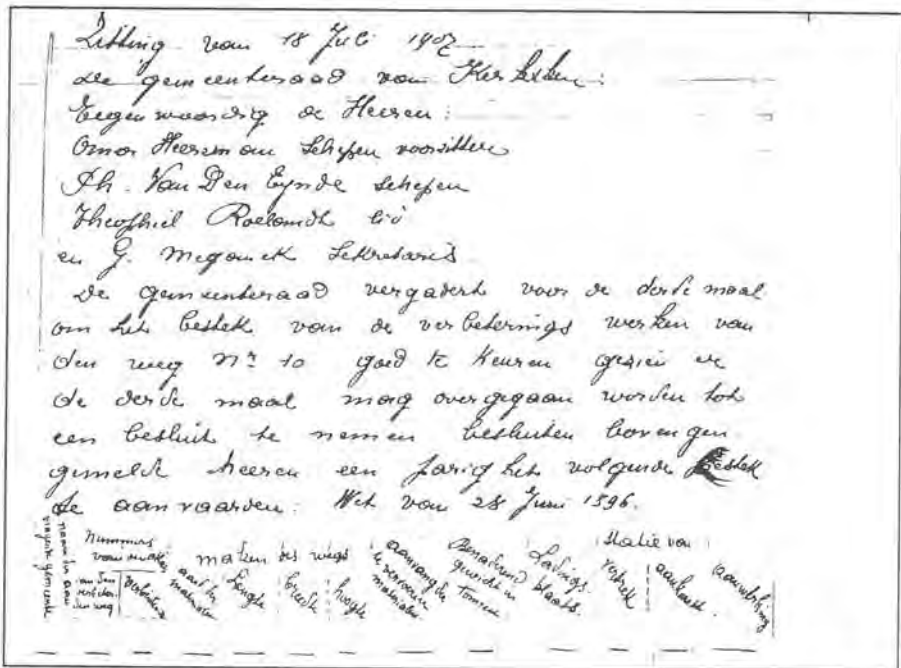 Zitting van 18 Juli 1907
De gemeenteraad van Kerksken:
Tegenwoordig de Heeren:
Omer Heereman Schepen voorzitter
Ph. Van Den Eynde schepen
Theophiel Roelandt lid
en G. Meganck Sekretaris
De gemeenteraad vergadert voor de derde maal
om het bestek van de verbeterings werken van
den weg Nr 10 goed te keuren gezien er
de derde maal mag overgegaan worden tot
een besluit te nemen besluiten boven gen
gemelde heeren een parig het volgende Bestek
te aanvaarden. Wet van 28 Juni 1896.
naam der aan vragende gemeente
Nummers van
van den verbeter den weg
verbinding
aard der materialen
maten des wegs
Lengte
breedte
hoogte
aangevraagde materialen
Benaderend gewicht in Tonnen
Ladings plaats
Statie van
vertrek
aankomst
aanmerking